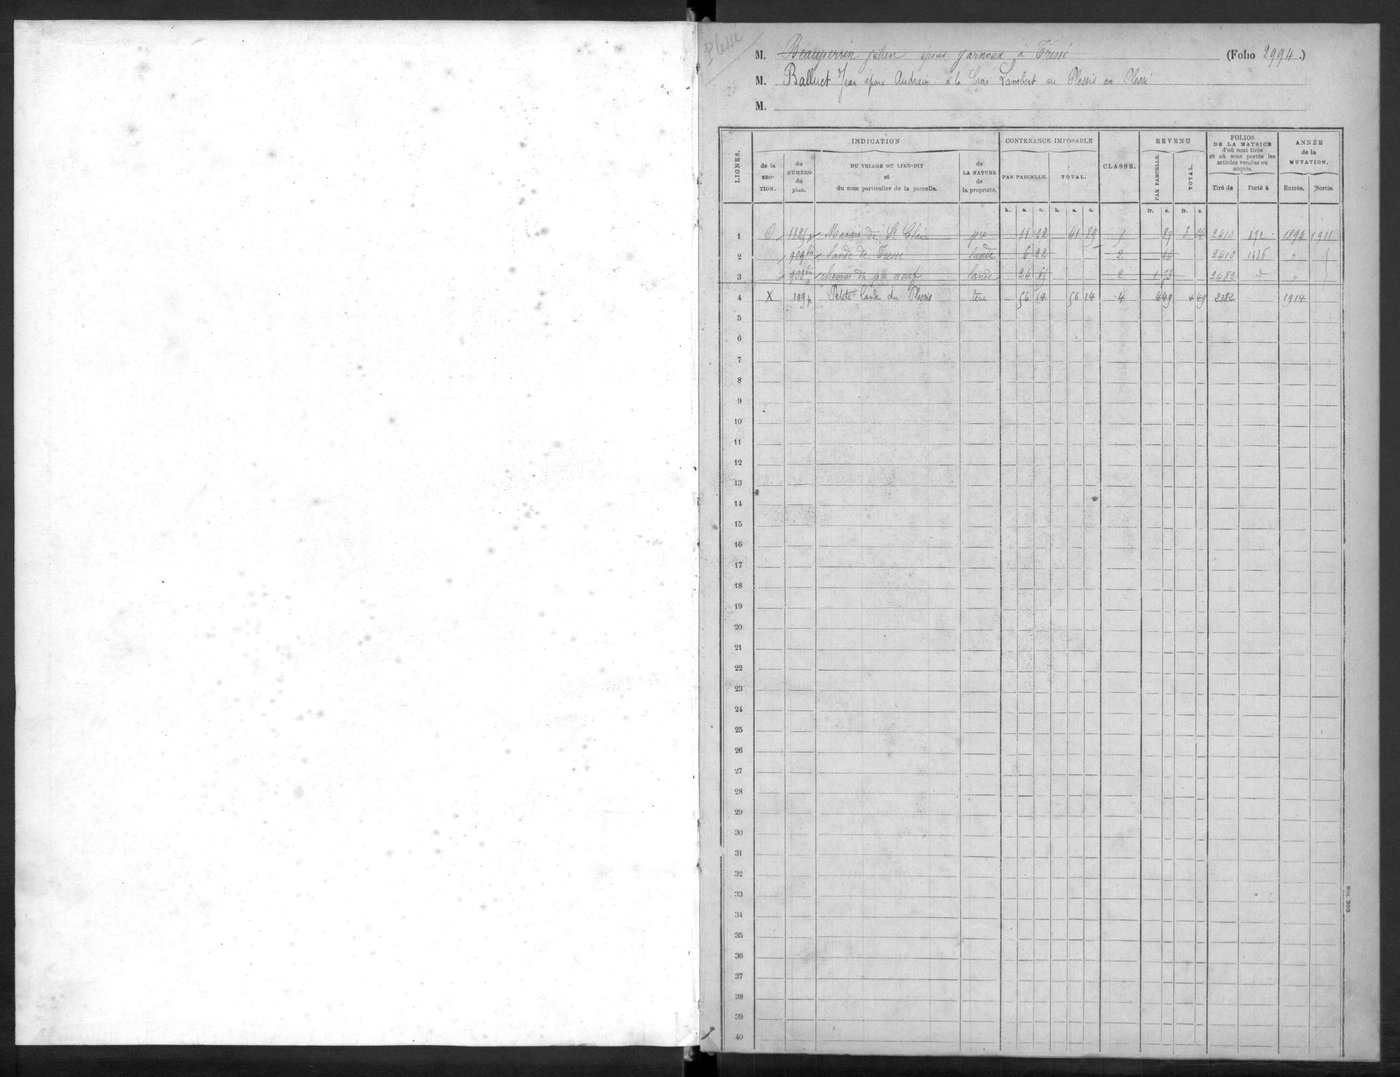 Plessé
M. Beauperrin Julien époux Jarnoux à Tressé (Folio 2994.)
M. Balluet Jean époux Audrain à la Croix Lambert au Plessis en Plessé
M.
LIGNES. INDICATION CONTENANCE IMPOSABLE CLASSE. REVENU FOLIOS DE LA MATRICE d'où sont tirés et où sont portés les articles vendus ou acquis. ANNÉE de la MUTATION.
de la SECTION. du NUMÉRO du plan. DU TRIAGE OU LIEU-DIT et du nom particulier de la parcelle. de LA NATURE de la propriété. PAR PARCELLE. TOTAL. PAR PARCELLE. TOTAL. Tiré de Porté à Entrée. Sortie.
h. a. c. h. a. c. fr. c. fr. c.
1 O 1321p Marais de St Clair pré 11 22 41 89 2410 1894 1911
2 lande de Tressé lande 6 22 2 2410 1436 "
3 Chemin du lande 24 2 2482 "
4 X 109p Petite lande du Plessis terre 56 14 56 14 4 4 49 4 49 2382 1914
5
6
7
8
9
10
11
12
13
14
15
16
17
18
19
20
21
22
23
24
25
26
27
28
29
30
31
32
33
34
35
36
37
38
39
40